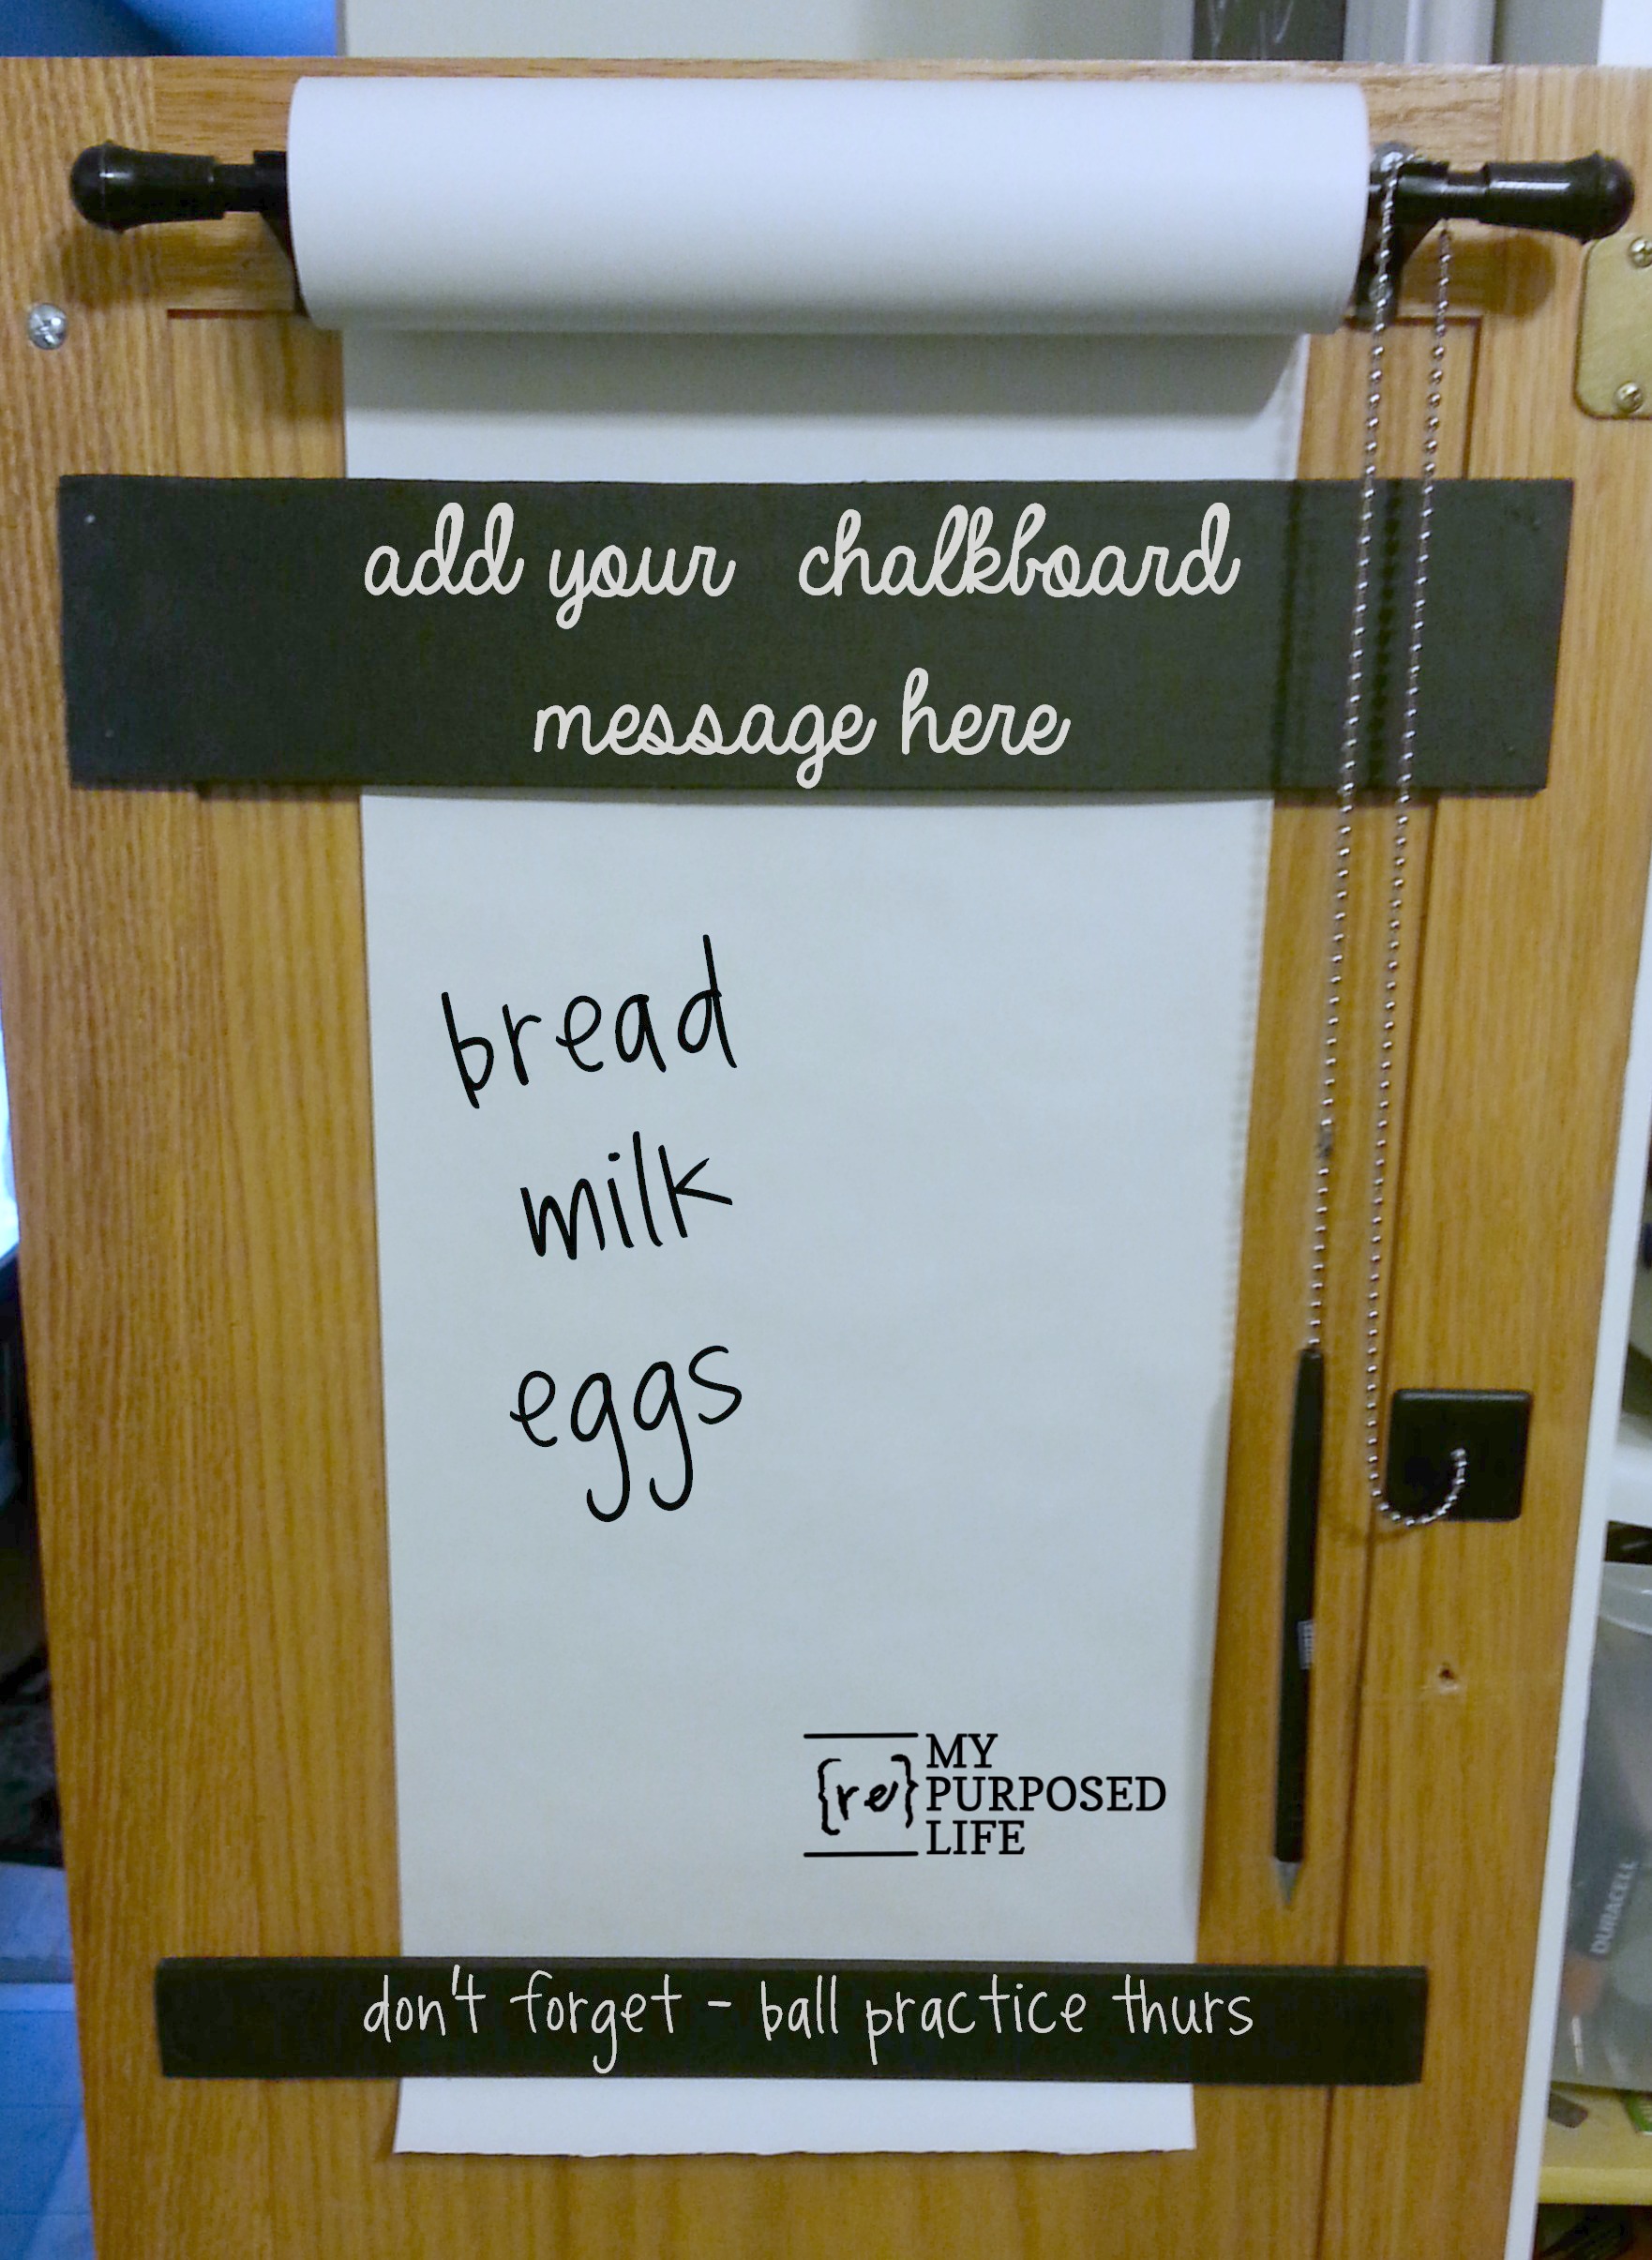 add your chalkboard
message here
bread
milk
eggs
{re}
MY
PURPOSED
LIFE
DURACELL
don't forget - ball practice thurs